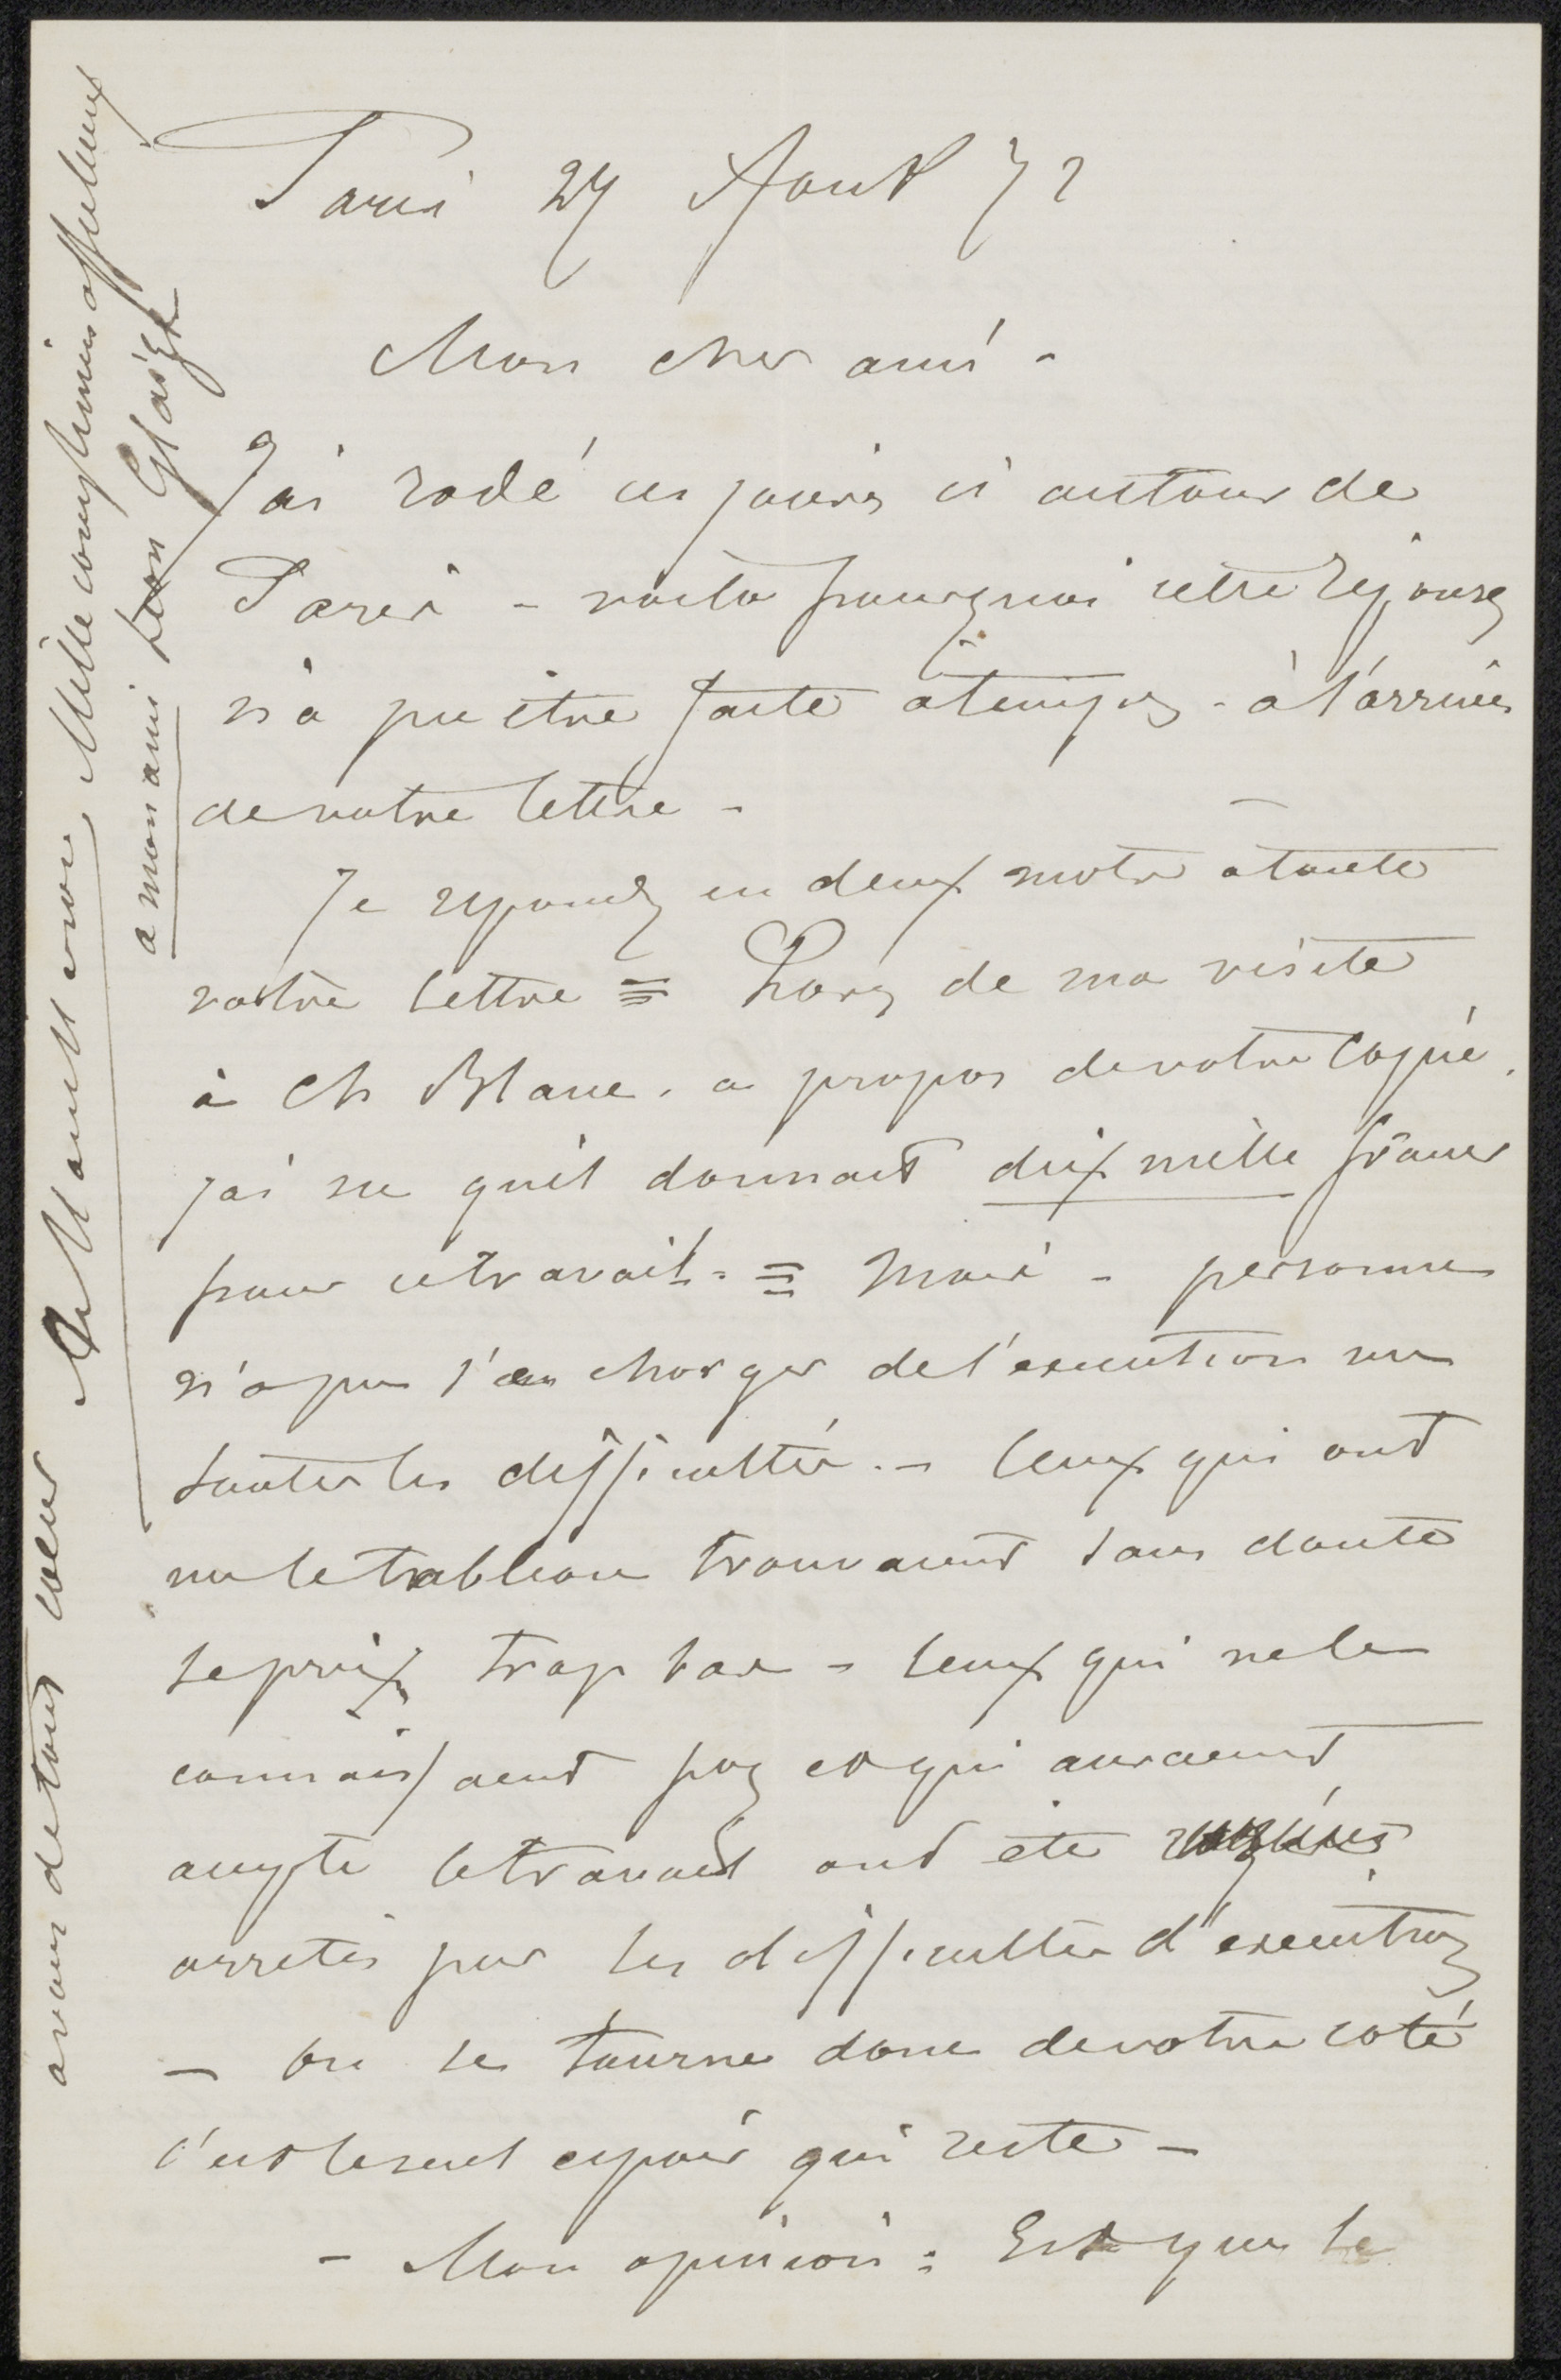 Paris 27 Aout 72
Mon cher ami -
J'ai rodé ces jours ci autour de
Paris - voila pourquoi cette réponse
n'a pu être faite à temps - à l'arrivée
de votre lettre -
Je reponds en deux mots a toute
votre lettre = Lors de ma visite
à Ch Blanc. a propos de votre copie.
j'ai su qu'il donnait dix mille francs
pour ce travail. = Mais - personne
n'a pu s'en charger de l'execution vu
toutes les difficultés. - Ceux qui ont
vu le tableau trouvaient sans doute
le prix trop bas - ceux qui ne le
connaissaient pas et qui auraient
accepté le travail ont été
arretés par les difficultés d'execution
- on se tourne donc de votre coté
c'est le seul espoir qui reste -
- Mon opinion : Est que le
avons de tout cœur
Mille complimens affectueux
a mon ami Léon Glaize